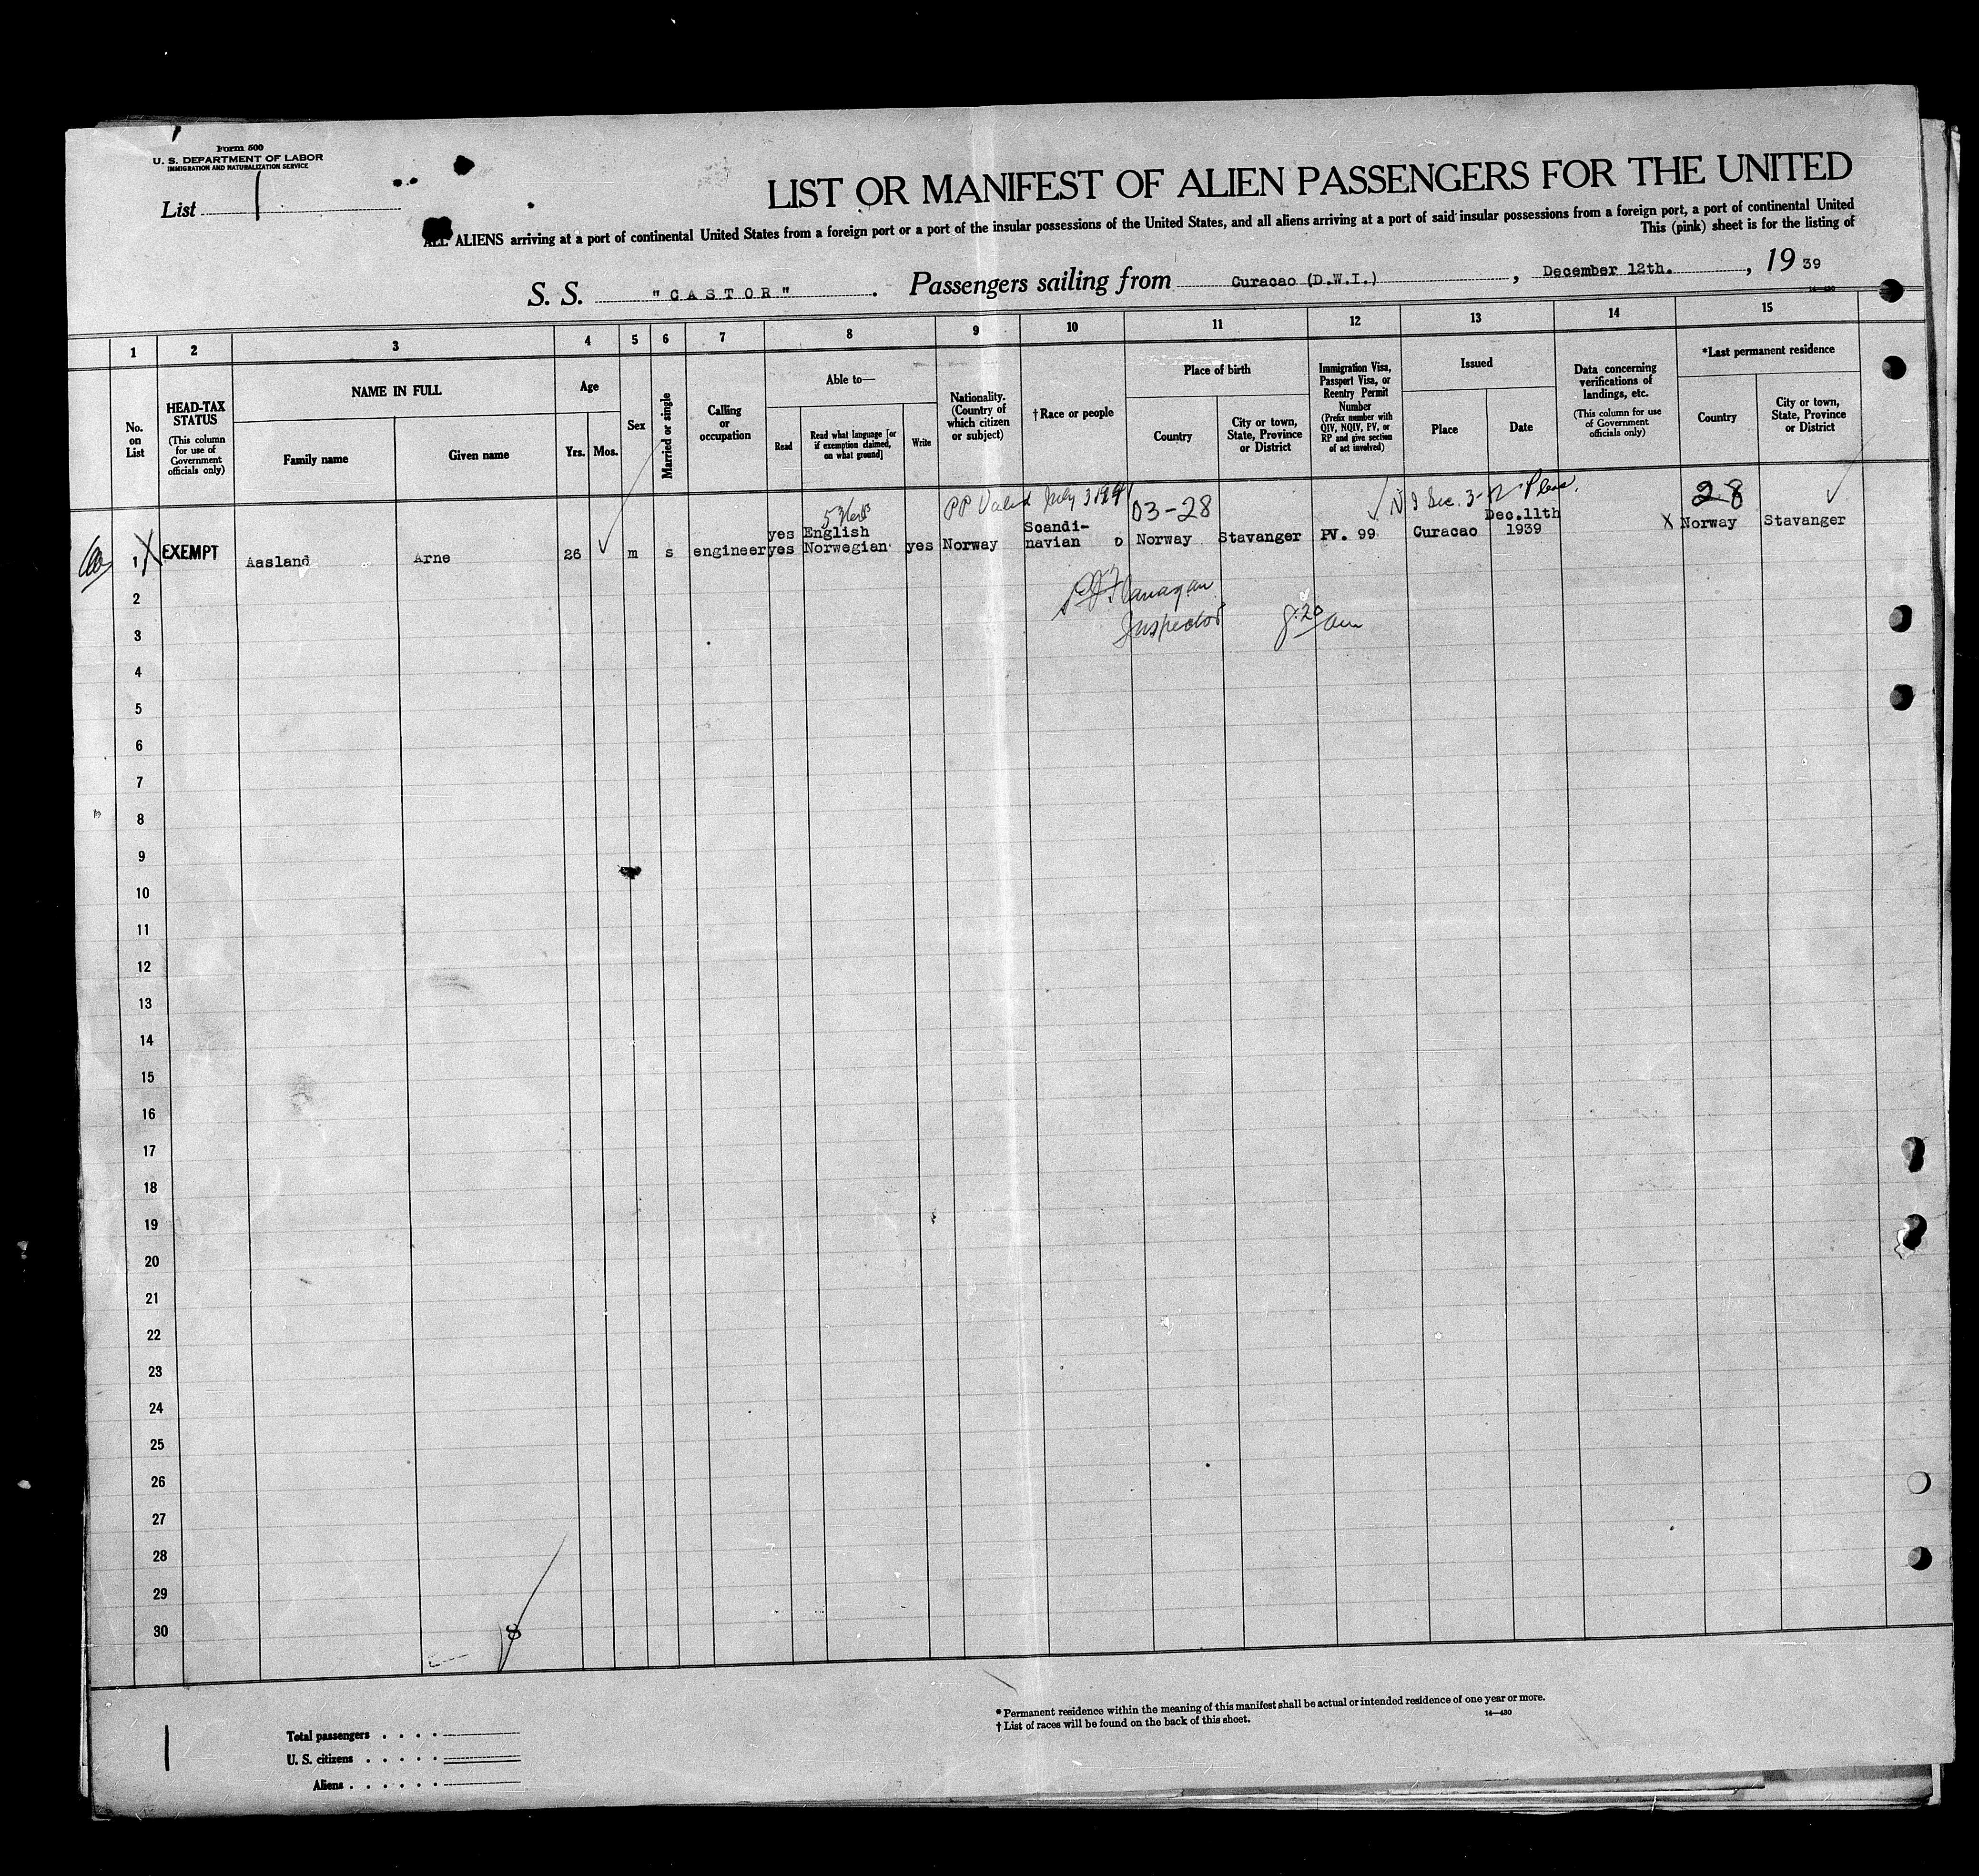 Form 500
U. S. DEPARTMENT OF LABOR
IMMIGRATION AND NATURALIZATION SERVICE
List 1
LIST OR MANIFEST OF ALIEN PASSENGERS FOR THE UNITED
ALL ALIENS arriving at a port of continental United States from a foreign port or a port of the insular possessions of the United States, and all aliens arriving at a port of said insular possessions from a foreign port, a port of continental United
This (pink) sheet is for the listing of
S. S. "CASTOR" . Passengers sailing from Curacao (D.W.I.) , December 12th. , 19 39
14—430
1 2 3 4 5 6 7 8 9 10 11 12 13 14 15
No. on List
HEAD-TAX STATUS
(This column for use of Government officials only)
NAME IN FULL
Family name
Given name
Age
Yrs. Mos.
Sex
Married or single
Calling or occupation
Able to—
Read
Read what language [or if exemption claimed, on what ground]
Write
Nationality. (Country of which citizen or subject)
† Race or people
Place of birth
Country
City or town, State, Province or District
Immigration Visa, Passport Visa, or Reentry Permit Number
(Prefix number with QIV, NQIV, PV, or RP and give section of act involved)
Issued
Place
Date
Data concerning verifications of landings, etc.
(This column for use of Government officials only)
*Last permanent residence
Country
City or town, State, Province or District
PP Valid July 3 1941 03-28 Sec. 3- 28
yes English Scandi- Dec.11th
1 EXEMPT Aasland Arne 26 m s engineer yes Norwegian yes Norway navian Norway Stavanger PV. 99 Curacao 1939 X Norway Stavanger
Flanagan
Inspector
am
2
3
4
5
6
7
8
9
10
11
12
13
14
15
16
17
18
19
20
21
22
23
24
25
26
27
28
29
30
8
* Permanent residence within the meaning of this manifest shall be actual or intended residence of one year or more.
† List of races will be found on the back of this sheet.
14—430
1
Total passengers . . . .
U. S. citizens . . . . .
Aliens . . . . . .